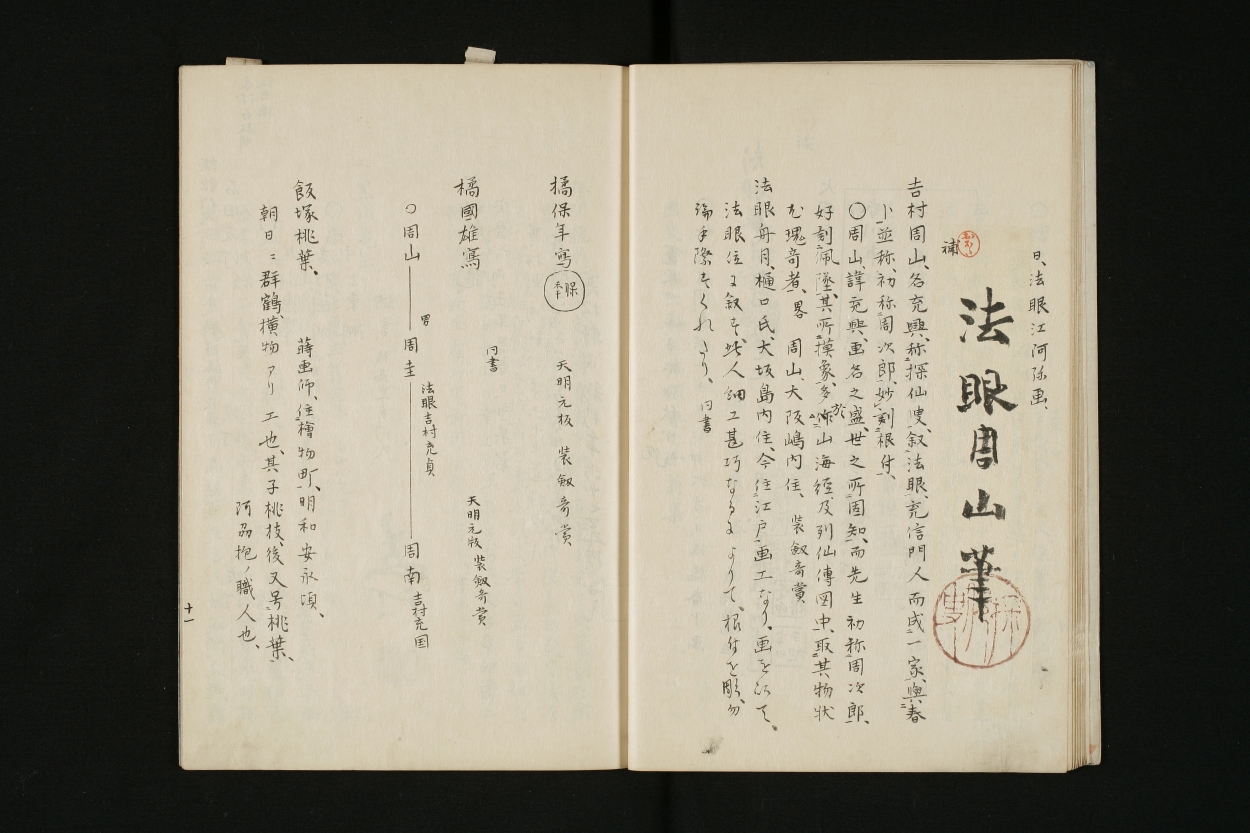 日、法眼江阿弥画、
法眼周山筆
補
吉村周山、名充興、称探仙叟、叙法眼、充信門人而成一家、與春
卜並称、初称周次郎、妙刻根付、
〇周山、諱充興、画名之盛、世之所固知、而先生初称周次郎、
好刻佩墜、其所摸象、多於山海経、及列仙傳図中、取其物状
尤瑰奇者、畧 周山、大阪嶋内住、 装劔奇賞
法眼舟月、樋口氏、大坂島内住、今住江戸、画工なり、画を以て、
法眼位に叙す、此人細工甚巧なるによりて、根付を彫、勿
論手際すぐれたり、 同書
橘保年寫 保年 天明元板 装劔奇賞
橘國雄寫 同書 天明元版 装劔奇賞
〇周山 男 周圭 法眼吉村充貞 周南 吉村充国
飯塚桃葉、 蒔画師、住檜物町、明和安永頃、
朝日ニ群鶴、横物アリ 工也、其子桃枝、後又号桃葉、
阿州抱ノ職人也、
十一